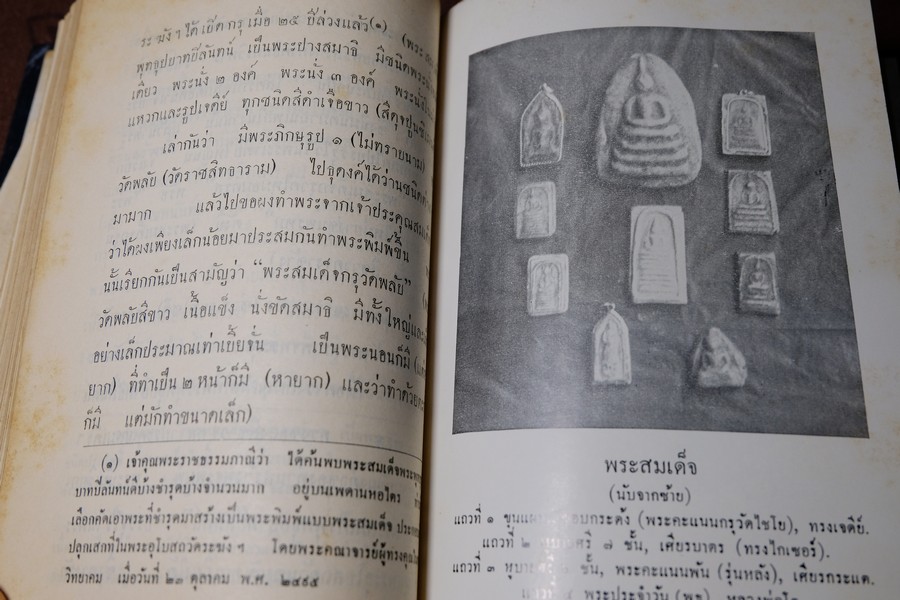 ระฆังฯ ได้เปิดกรุ เมื่อ ๒๕ ปีล่วงแล้ว(๑) (พระ
พุทธุปบาทปิลันทน์ เป็นพระปางสมาธิ มีชนิดพระ
เดียว พระนั่ง ๒ องค์ พระนั่ง ๓ องค์ พระนั่ง
แหวกและรูปเจดีย์ ทุกชนิดสีดำเจือขาว
เล่ากันว่า มีพระภิกษุรูป ๑ (ไม่ทราบนาม)
วัดพลับ (วัดราชสิทธาราม) ไปธุดงค์ได้ว่านชนิด
มามาก แล้วไปขอผงทำพระจากเจ้าประคุณสมเด็จ
ว่าได้ผงเพียงเล็กน้อยมาประสมกันทำพระพิมพ์ขึ้น
นั้นเรียกกันเป็นสามัญว่า “พระสมเด็จกรุวัดพลับ”
วัดพลับสีขาว เนื้อแข็ง นั่งขัดสมาธิ มีทั้งใหญ่และ
อย่างเล็กประมาณเท่าเบี้ยจั่น เป็นพระนอนก็มี
ยาก) ที่ทำเป็น ๒ หน้าก็มี (หายาก) และว่าทำด้วย
ก็มี แต่มักทำขนาดเล็ก)
(๑) เจ้าคุณพระราชธรรมภาณีว่า ได้ค้นพบพระสมเด็จพระพุทธุ
บาทปิลันทน์ดีบ้างชำรุดบ้างจำนวนมาก อยู่บนเพดานหอไตร
เลือกคัดเอาพระที่ชำรุดมาสร้างเป็นพระพิมพ์แบบพระสมเด็จ
ปลุกเสกที่ในพระอุโบสถวัดระฆัง ฯ โดยพระคณาจารย์ผู้ทรงคุณ
วิทยาคม เมื่อวันที่ ๒๑ ตุลาคม พ.ศ. ๒๔๙๕
พระสมเด็จ
(นับจากซ้าย)
แถวที่ ๑ ขุนแผน กระด้ง (พระคะแนนกรุวัดไชโย), ทรงเจดีย์.
แถวที่ ๒ ๗ ชั้น, เศียรบาตร (ทรงไกเซอร์).
แถวที่ ๓ ชั้น, พระคะแนนพัน (รุ่นหลัง), เศียรกระแต.
พระประจำวัน (พุธ),